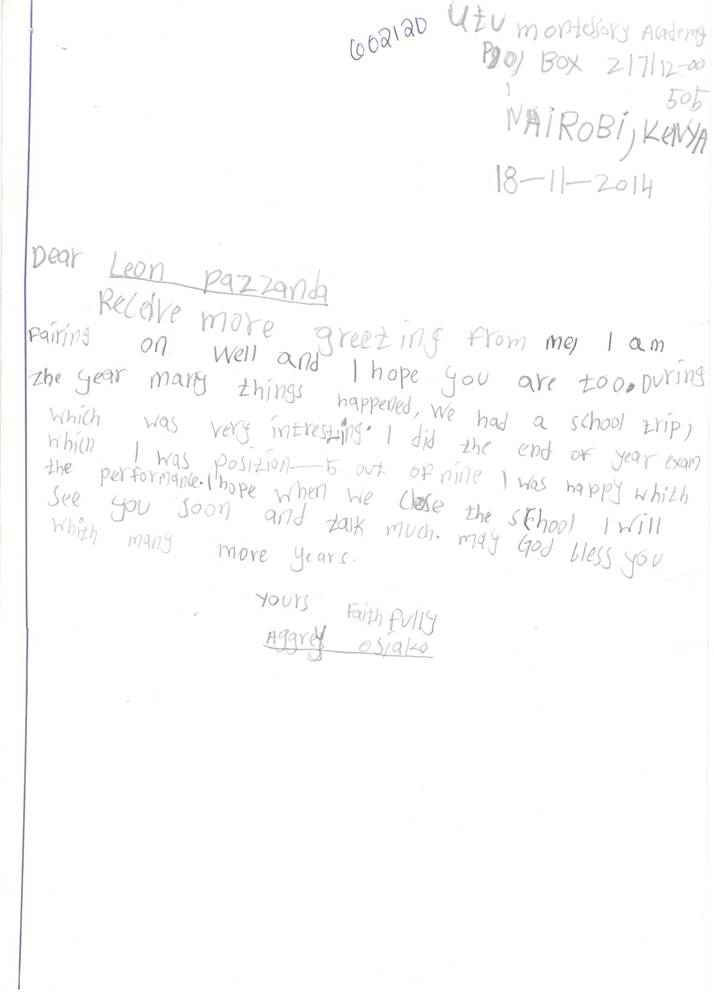 602120
Utu montessory Academy
P.O, BOX 21712-00
505
NAiROBi, KENYA
18-11-2014
Dear Leon Pazzanda
Receive more greeting from me, I am
Fairing on well and I hope you are too. During
the year many things happened, we had a school trip,
which was very intresting. I did the end of year exam
which I was position 5 out of nine I was happy whith
the performance. I hope when we close the school I will
see you soon and talk much. may God bless you
whith many more years.
Yours Faithfully
Aggrey Osiako